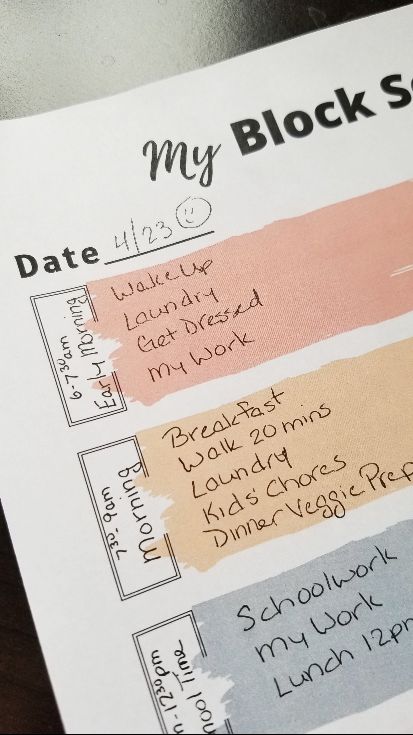 My Block
Date 4/23
6-7:30am
Early Morning
Wake Up
Laundry
Get Dressed
My Work
7:30-9am
Morning
Breakfast
Walk 20 mins
Laundry
Kids' Chores
Dinner Veggie Prep
12:30pm
Time
Schoolwork
My Work
Lunch 12pm